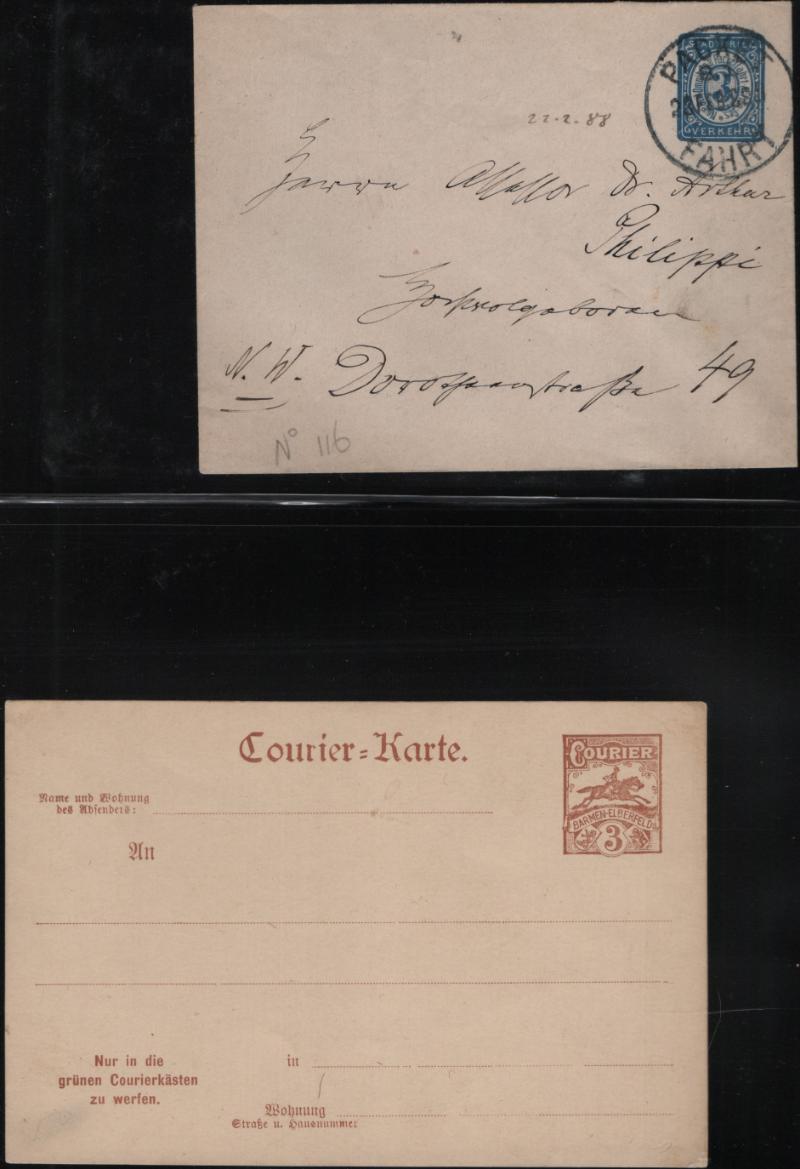 STADTBRIEF
3
VERKEHR
PACKET
FAHRT
22.2.88
Herrn Assessor Dr. Arthur
Philippi
Hochwolgeboren
N. W. Dorotheenstraße 49
No 116
Courier=Karte.
COURIER
BARMEN-ELBERFELD
3
Name und Wohnung
des Absenders:
An
Nur in die
grünen Courierkästen
zu werfen.
in
Wohnung
Straße u. Hausnummer